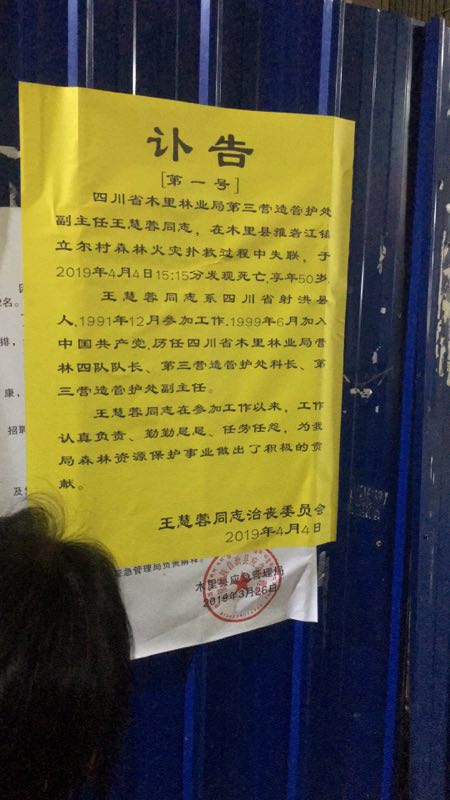 讣告
[第一号]
四川省木里林业局第三营造管护处
副主任王慧蓉同志，在木里县雅砻江镇
立尔村森林火灾扑救过程中失联，于
2019年4月4日15:15分发现死亡，享年50岁。
王慧蓉同志系四川省射洪县
人，1991年12月参加工作，1999年6月加入
中国共产党，历任四川省木里林业局营
林四队队长、第三营造管护处科长、第
三营造管护处副主任。
王慧蓉同志在参加工作以来，工作
认真负责、勤勤恳恳、任劳任怨，为我
局森林资源保护事业做出了积极的贡
献。
王慧蓉同志治丧委员会
2019年4月4日
2名。
排，
康，
招聘
及
应急管理局负责解释。
木里县应急管理局
2019年3月26日